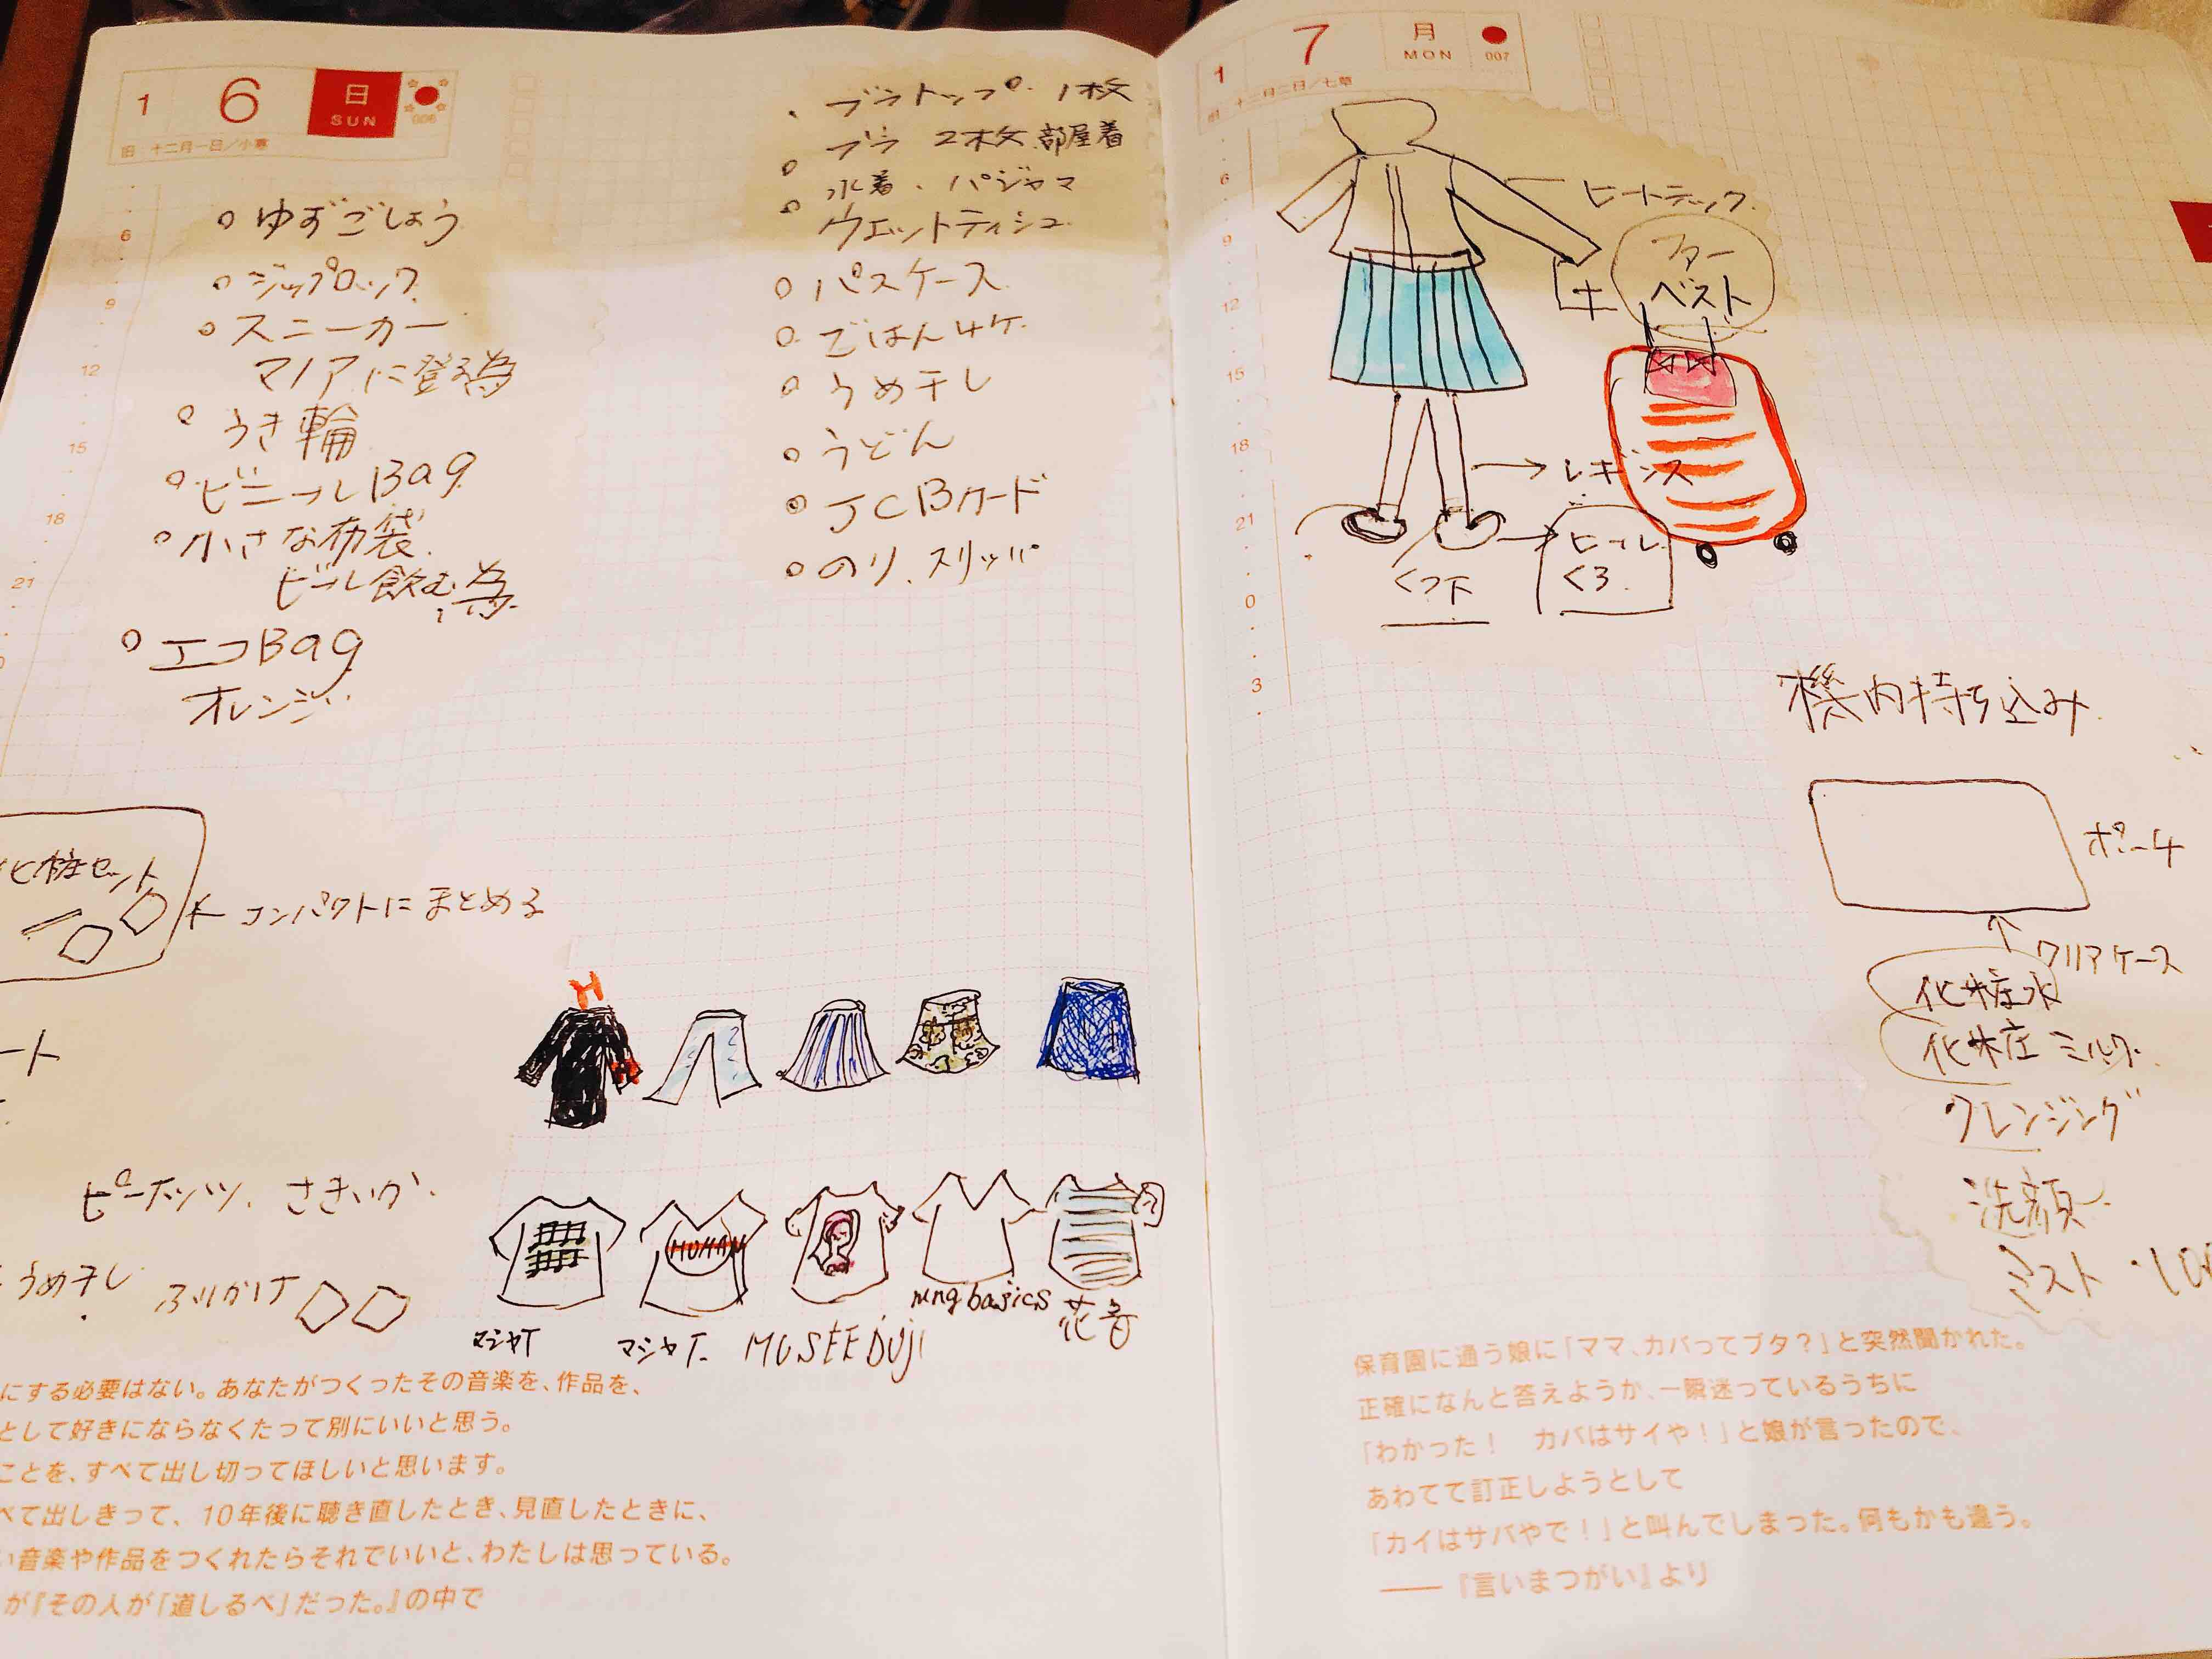 1 6 日 SUN
006
旧 十二月一日/小寒
6
9
12
15
18
21
ゆずごしょう
ジップロック
スニーカー
マノアに登る為
うき輪
ビニールBag
小さな布袋
ビール飲む為
エコBag
オレンジ
ブラトップ 1枚
ブラ 2枚 部屋着
水着、パジャマ
ウェットティシュ
パスケース
ごはん4ケ
うめ干し
うどん
JCBカード
のり、スリッパ
化粧セット
← コンパクトにまとめる
ート
ピーナッツ、さきいか
うめ干し ふりかけ
H
HUMAN
マシャT
マシャT
MUSEE DUJI
ning basics
花音
にする必要はない。あなたがつくったその音楽を、作品を、
として好きにならなくたって別にいいと思う。
ことを、すべて出し切ってほしいと思います。
べて出しきって、10年後に聴き直したとき、見直したときに、
い音楽や作品をつくれたらそれでいいと、わたしは思っている。
が『その人が「道しるべ」だった。』の中で
1 7 月 MON
007
旧 十二月二日/七草
6
9
12
15
18
21
0
3
ヒートテック
ファー
ベスト
レギンス
くつ下
ヒール
くろ
機内持ち込み
ポーチ
クリアケース
化粧水
化粧ミルク
クレンジング
洗顔
ミスト
保育園に通う娘に「ママ、カバってブタ?」と突然聞かれた。
正確になんと答えようか、一瞬迷っているうちに
「わかった! カバはサイや!」と娘が言ったので、
あわてて訂正しようとして
「カイはサバやで!」と叫んでしまった。何もかも違う。
——『言いまつがい』より